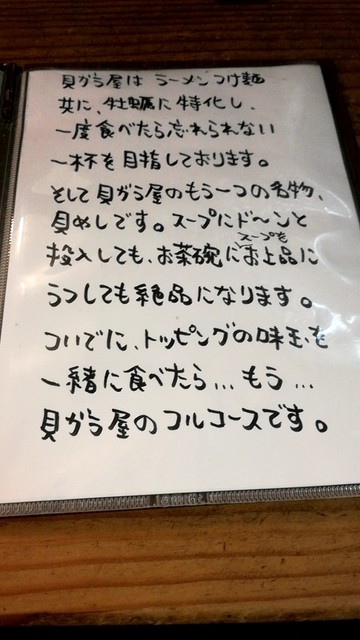 貝がら屋は ラーメンつけ麺
共に、牡蠣に特化し、
一度食べたら忘れられない
一杯を目指しております。
そして貝がら屋のもう一つの名物、
貝めしです。スープにド〜ンと
投入しても、お茶碗にスープをお上品に
うつしても絶品になります。
ついでに、トッピングの味玉を
一緒に食べたら...もう...
貝がら屋のフルコースです。